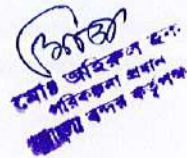 মোঃ জহিরুল হক
পরিকল্পনা প্রধান
মোংলা বন্দর কর্তৃপক্ষ